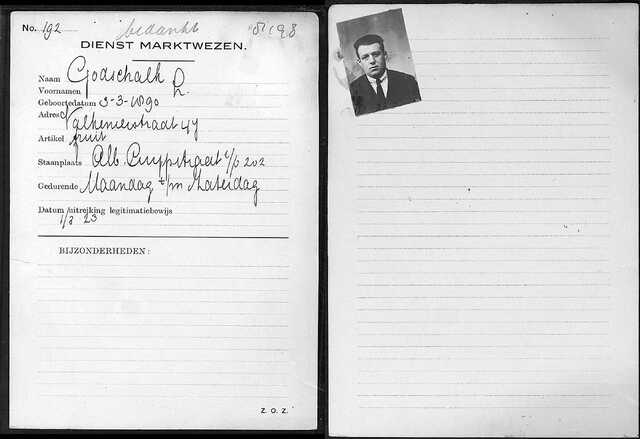 No. 192 bedankt
DIENST MARKTWEZEN.
Naam Godschalk D.
Voornamen
Geboortedatum 3-3-1890
Adres Valkenierstraat 47
Artikel fruit
Staanplaats Alb. Cuypstraat t/o 202
Gedurende Maandag t/m Zaterdag
Datum uitreiking legitimatiebewijs
1/3 23
BIJZONDERHEDEN:
Z. O. Z.